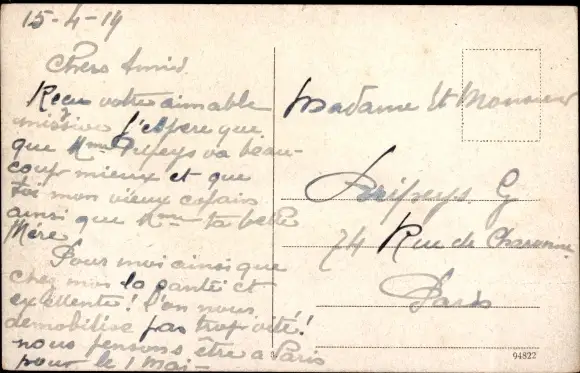 15-4-19
Chers Amis
Reçu votre aimable
missive j'espère que
que Mme Pripeys va beau-
coup mieux et que
toi mon vieux copain
ainsi que Mme ta belle
Mère
Pour moi ainsi que
chez moi la santé et
excellente! l'on nous
demobilise pas trop vite!
nous pensons être a Paris
pour le 1 Mai-
Madame Et Monsieur
Pripeys. G
74 Rue de Charonne
Paris
94822